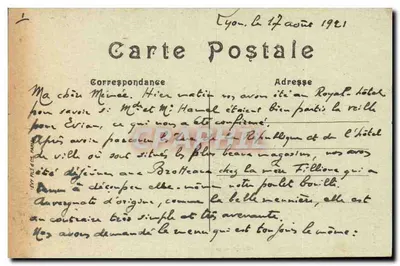 1
Lyon, le 17 août 1921
Carte Postale
Correspondance
Adresse
Ma chère Mémée. Hier matin ns avons été au Royal-Hôtel
pour savoir si Mde et Mr Hamel étaient bien partis la veille
pour Evian, ce qui nous a été confirmé.
Après avoir parcouru la rue de la République et de l'hôtel
de ville où sont situés les plus beaux magasins, nous avons
été déjeuner aux Brotteaux chez la mère Fillioux qui a
découper elle-même notre poulet bouilli.
Auvergnate d'origine, comme la belle meunière, elle est
au contraire très simple et très avenante.
Nous avons demandé le menu qui est toujours le même: